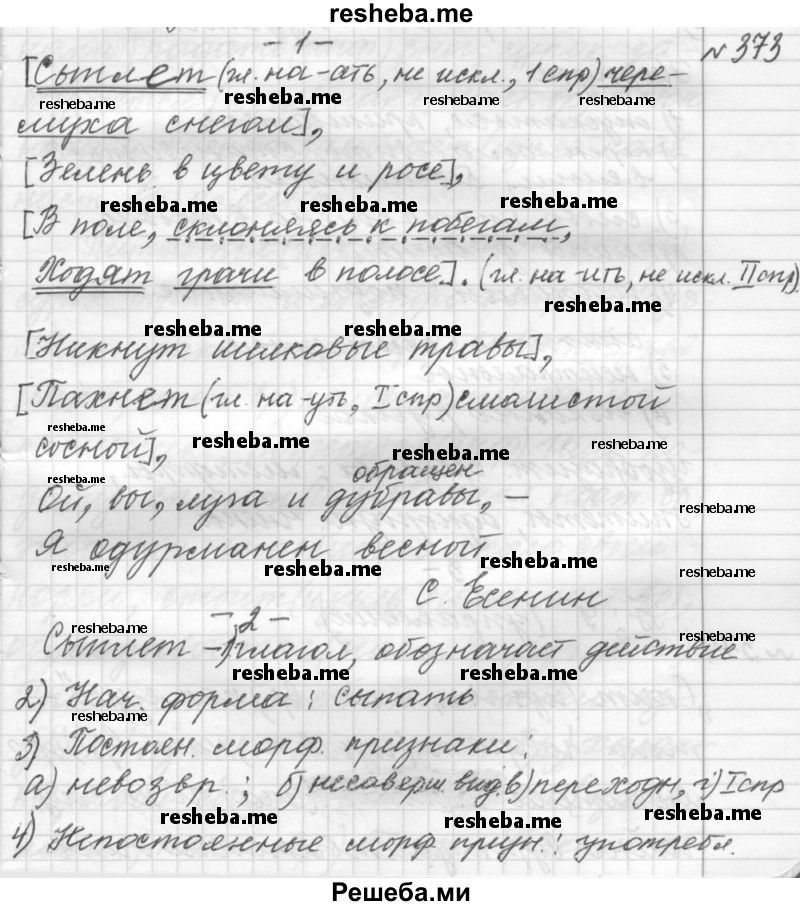 resheba.me
- 1 -
№ 373
[Сыплет (гл. на -ать, не искл., 1 спр) чере-
resheba.me resheba.me resheba.me resheba.me
муха снегом],
[Зелень в цвету и росе],
resheba.me resheba.me resheba.me
[В поле, склоняясь к побегам,
Ходят грачи в полосе]. (гл. на -ить, не искл. II спр)
resheba.me
resheba.me resheba.me
[Никнут шелковые травы],
[Пахнет (гл. на -уть, I спр) смолистой
resheba.me resheba.me resheba.me
сосной],
resheba.me resheba.me
обращен
Ой, вы, луга и дубравы, –
resheba.me
Я одурманен весной
resheba.me resheba.me resheba.me
С. Есенин
- 2 -
resheba.me resheba.me
Сыплет – 1) глагол, обозначает действие
resheba.me resheba.me
2) Нач. форма: сыпать
resheba.me
3) Постоян. морф. признаки:
а) невозвр.; б) несоверш. вид в) переходн, г) I спр
resheba.me resheba.me resheba.me
4) Непостоянные морф призн.: употребл.
Решеба.ми